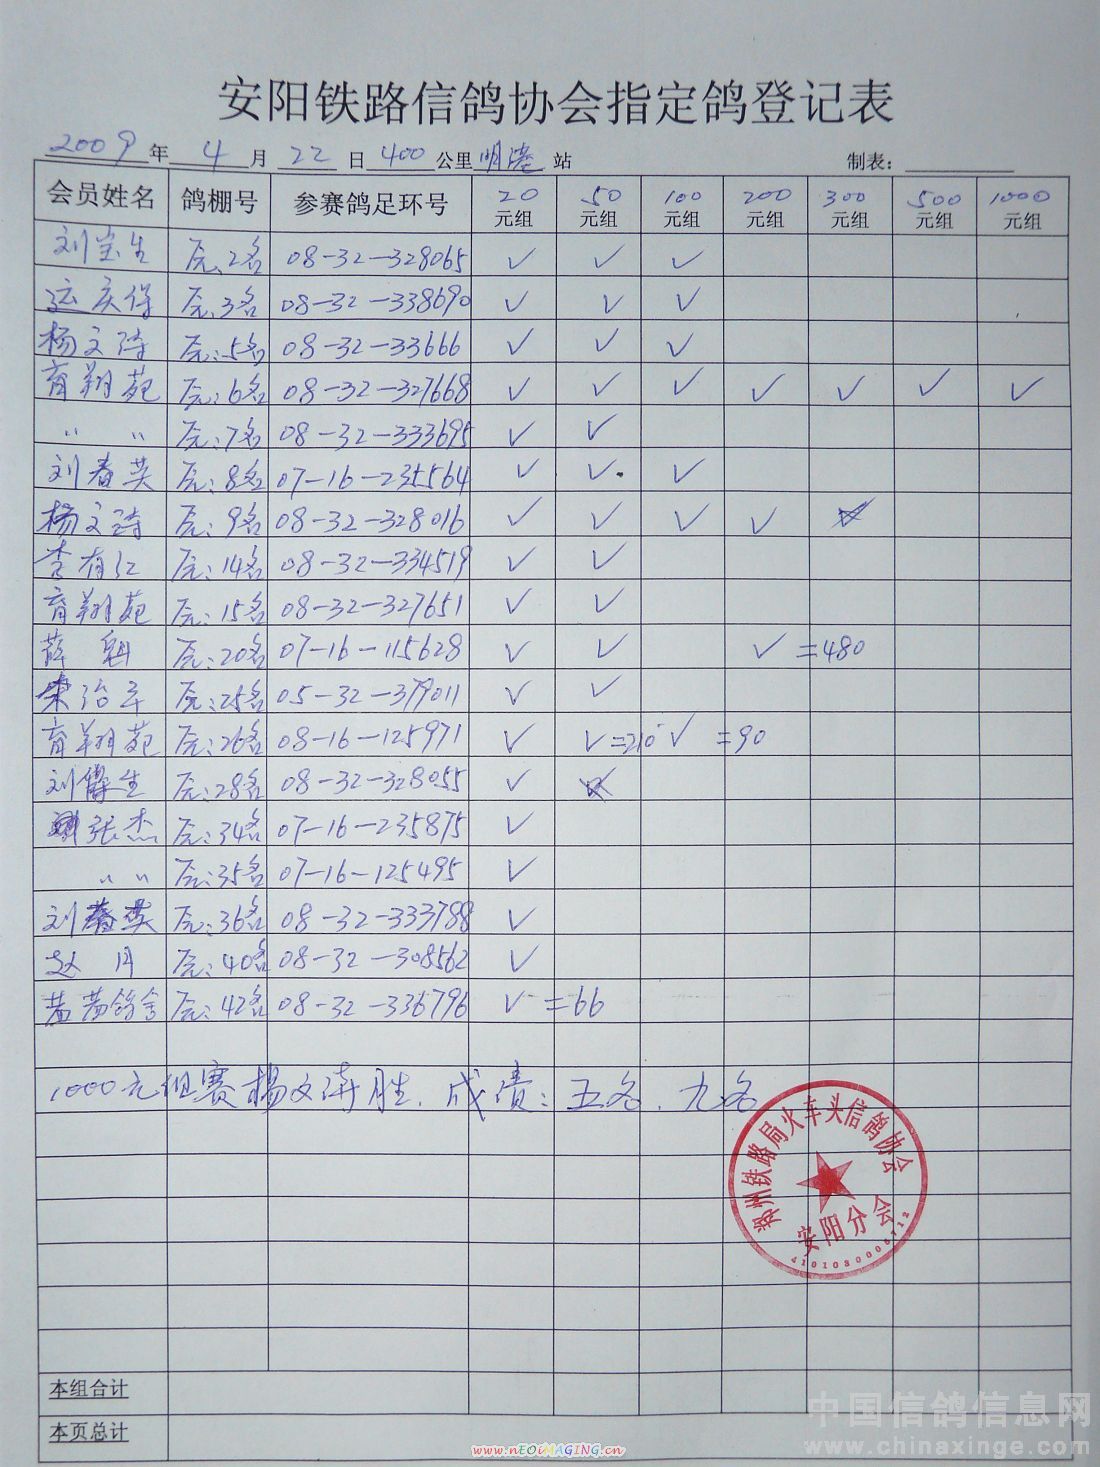 安阳铁路信鸽协会指定鸽登记表
2009年 4 月 22 日 400 公里 明港 站 制表：
会员姓名 鸽棚号 参赛鸽足环号 20元组 50元组 100元组 200元组 300元组 500元组 1000元组
刘宝生 2名 08-32-328065 ✓ ✓ ✓
运庆保 3名 08-32-338690 ✓ ✓ ✓
杨文 5名 08-32-33666 ✓ ✓ ✓
育翔苑 6名 08-32-327668 ✓ ✓ ✓ ✓ ✓ ✓ ✓
〃 〃 7名 08-32-333695 ✓ ✓
刘春英 8名 07-16-235564 ✓ ✓ ✓
杨文 9名 08-32-328016 ✓ ✓ ✓ ✓
李有江 14名 08-32-334519 ✓ ✓
育翔苑 15名 08-32-327651 ✓ ✓
薛魁 20名 07-16-115628 ✓ ✓ ✓ =480
治军 25名 05-32-379011 ✓ ✓
育翔苑 26名 08-16-125971 ✓ ✓ =210 ✓ =90
刘生 28名 08-32-328055 ✓
张杰 34名 07-16-235875 ✓
〃 〃 35名 07-16-125495 ✓
刘春英 36名 08-32-333788 ✓
赵月 40名 08-32-308562 ✓
茜茜鸽舍 42名 08-32-336796 ✓ =66
1000元组赛杨文胜．成绩：五名．九名
郑州铁路局火车头信鸽协会
安阳分会
4101030006712
本组合计
本页总计
中国信鸽信息网
www.chinaxinge.com
www.nEOiMAGING.cn